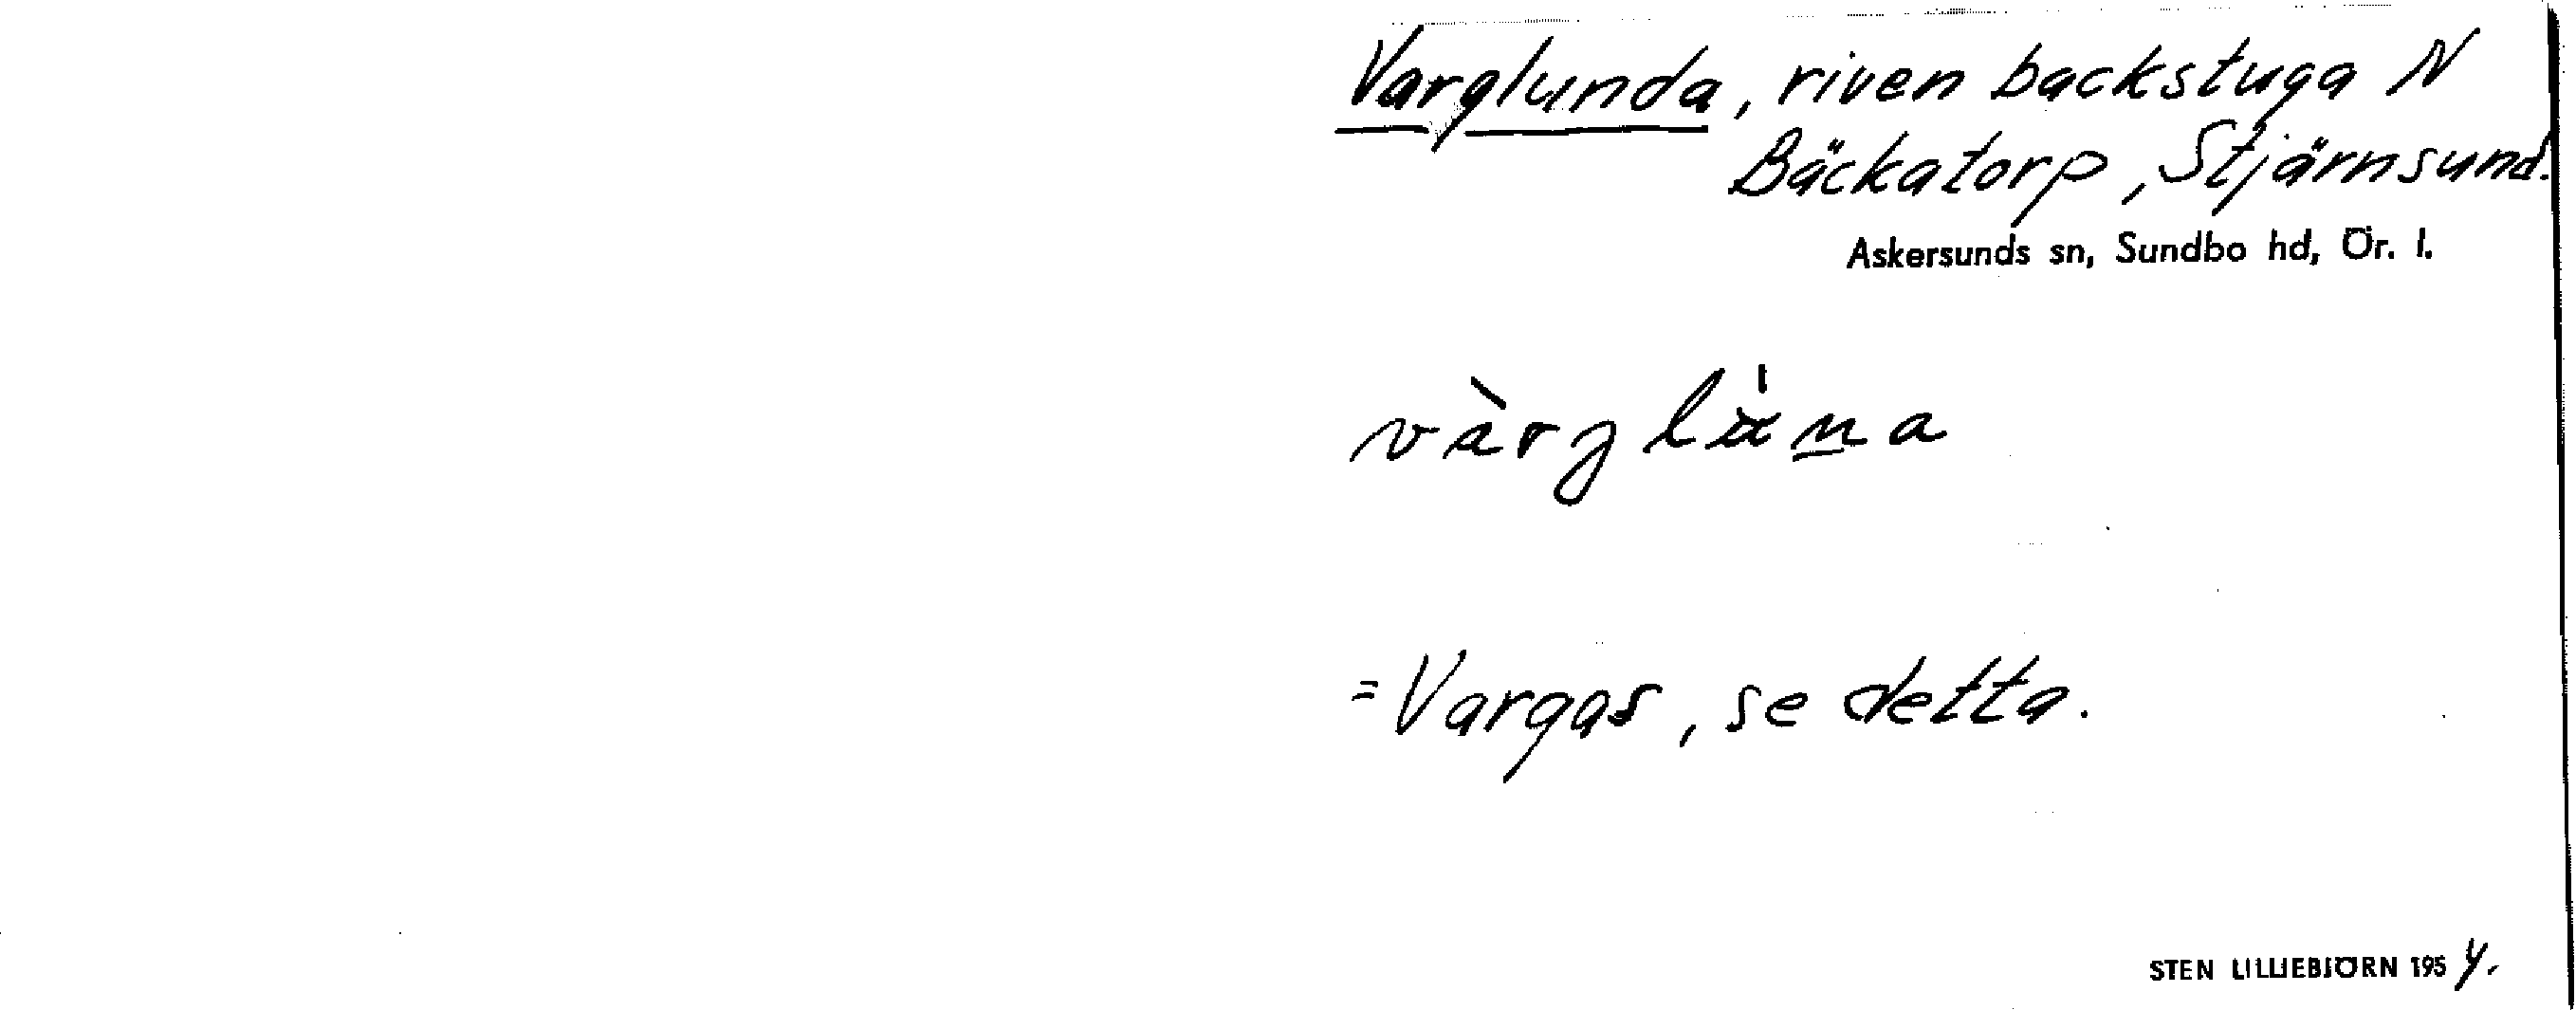 Varglunda, riven backstuga N
Bäckatorp, Stjärnsund.
Askersunds sn, Sundbo hd, Ör. l.
= Vargas, se detta.
STEN LILLIEBJÖRN 1954.